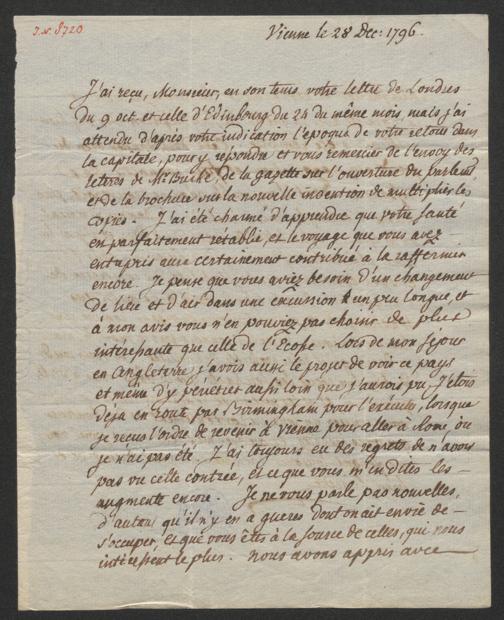 J.N. 8720
Vienne le 28 Dec: 1796.
J'ai reçu, Monsieur, en son tems votre lettre de Londres
du 9 oct. et celle d'Edinbourg du 24 du même mois, mais j'ai
attendu d'après votre indication l'epoque de votre retour dans
la capitale, pour y repondre et vous remercier de l'envoy des
lettres de Mr Burke, de la gazette sur l'ouverture du parlement,
et de la brochure sur la nouvelle invention de multiplier les
copies. J'ai été charmé d'apprendre que votre santé
en parfaitement rétablie, et le voyage que vous avez
entrepris aura certainement contribué à la raffermir
encore. Je pense que vous aviez besoin d'un changement
de lieu et d'air dans une excursion un peu longue, et
à mon avis vous n'en pouviez pas choisir de plus
intéressante que celle de l'Ecosse. Lors de mon sejour
en Angleterre j'avois aussi le projet de voir ce pays
et même d'y pénétrer aussi loin que j'aurois pu. J'étois
deja en route par Birmingham pour l'exécuter, lorsque
je recus l'ordre de revenir à Vienne pour aller à Rome, ou
je n'ai pas été. J'ai toujours eu des regrets de n'avoir
pas vu celle contrée, et ce que vous m'en dites les
augmente encore. Je ne vous parle pas nouvelles,
d'autant qu'il n'y en a gueres dont on ait envie de
s'occuper, et que vous êtes à la source de celles, qui nous
intéressent le plus. Nous avons appris avec